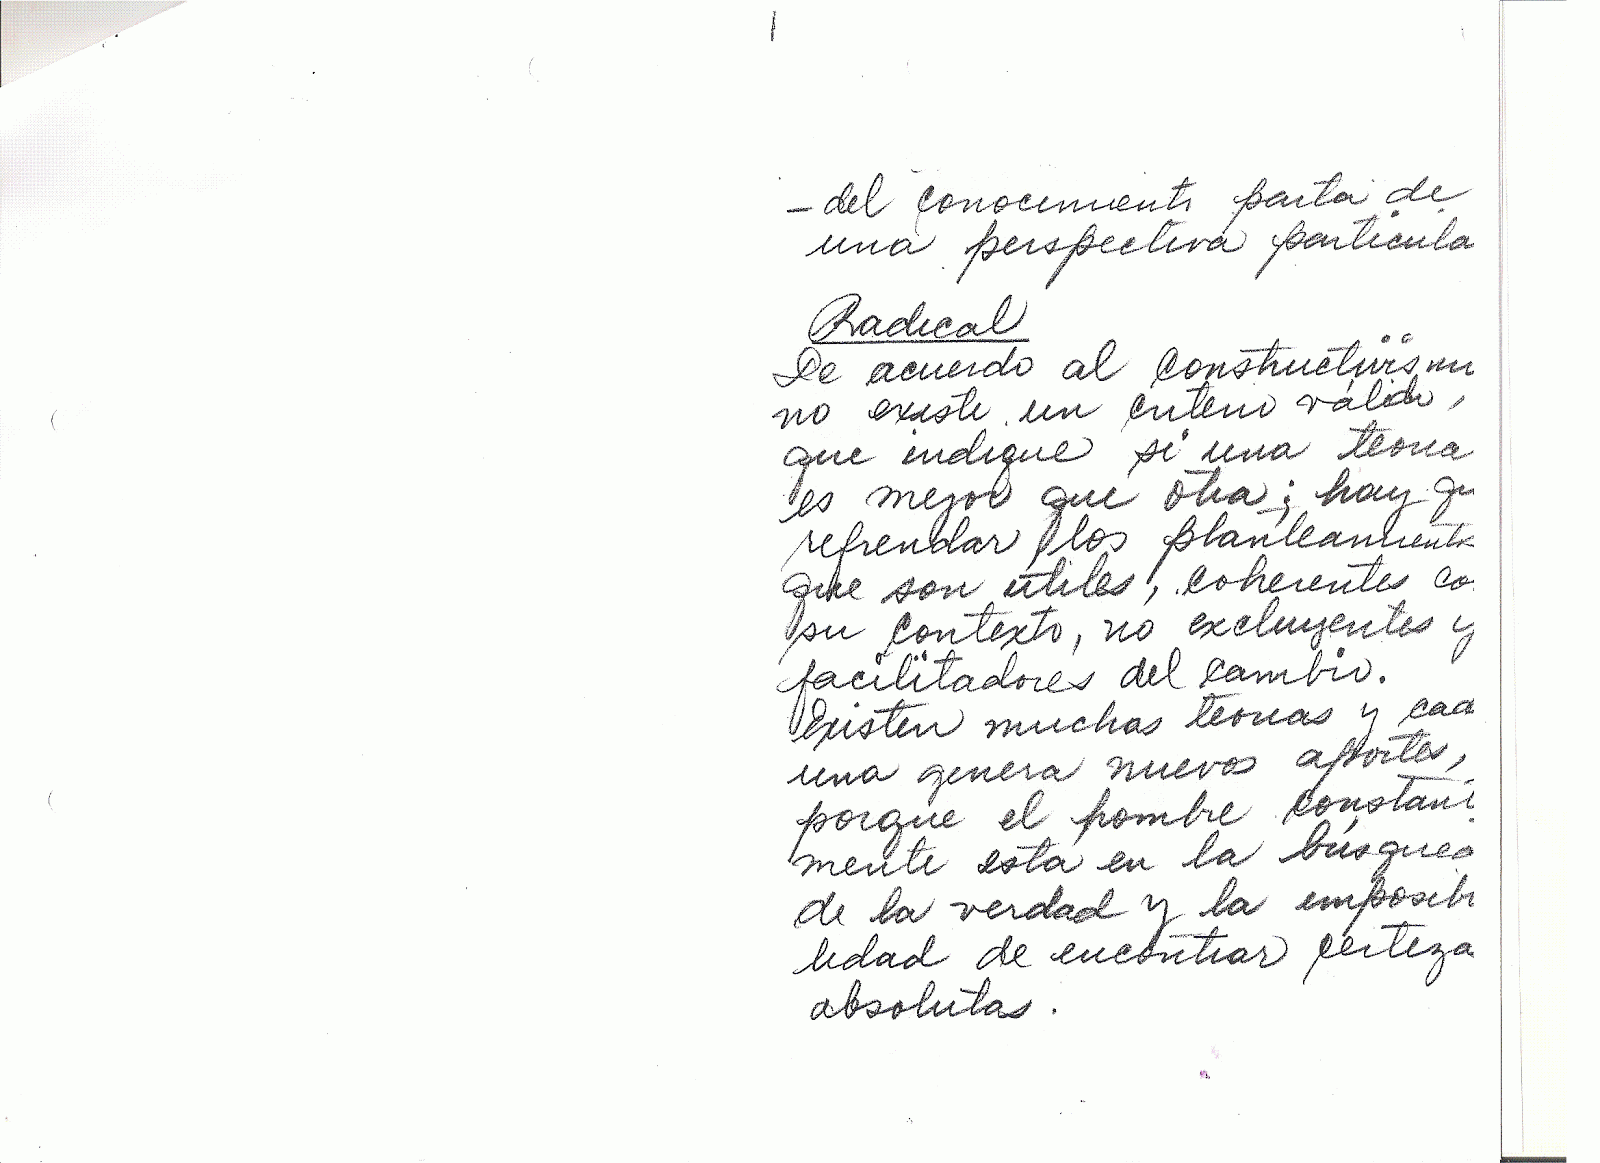 – del conocimiento parta de
una perspectiva particula
Radical
De acuerdo al constructivismo
no existe un criterio válido,
que indique si una teoria
es mejor que otra; hay qu
refrendar los planteamientos
que son útiles, coherentes co
su contexto, no excluyentes y
facilitadores del cambio.
Existen muchas teorias y cad
una genera nuevos aportes,
porque el hombre constant
mente esta en la búsqued
de la verdad y la imposibi
lidad de encontrar certeza
absolutas.